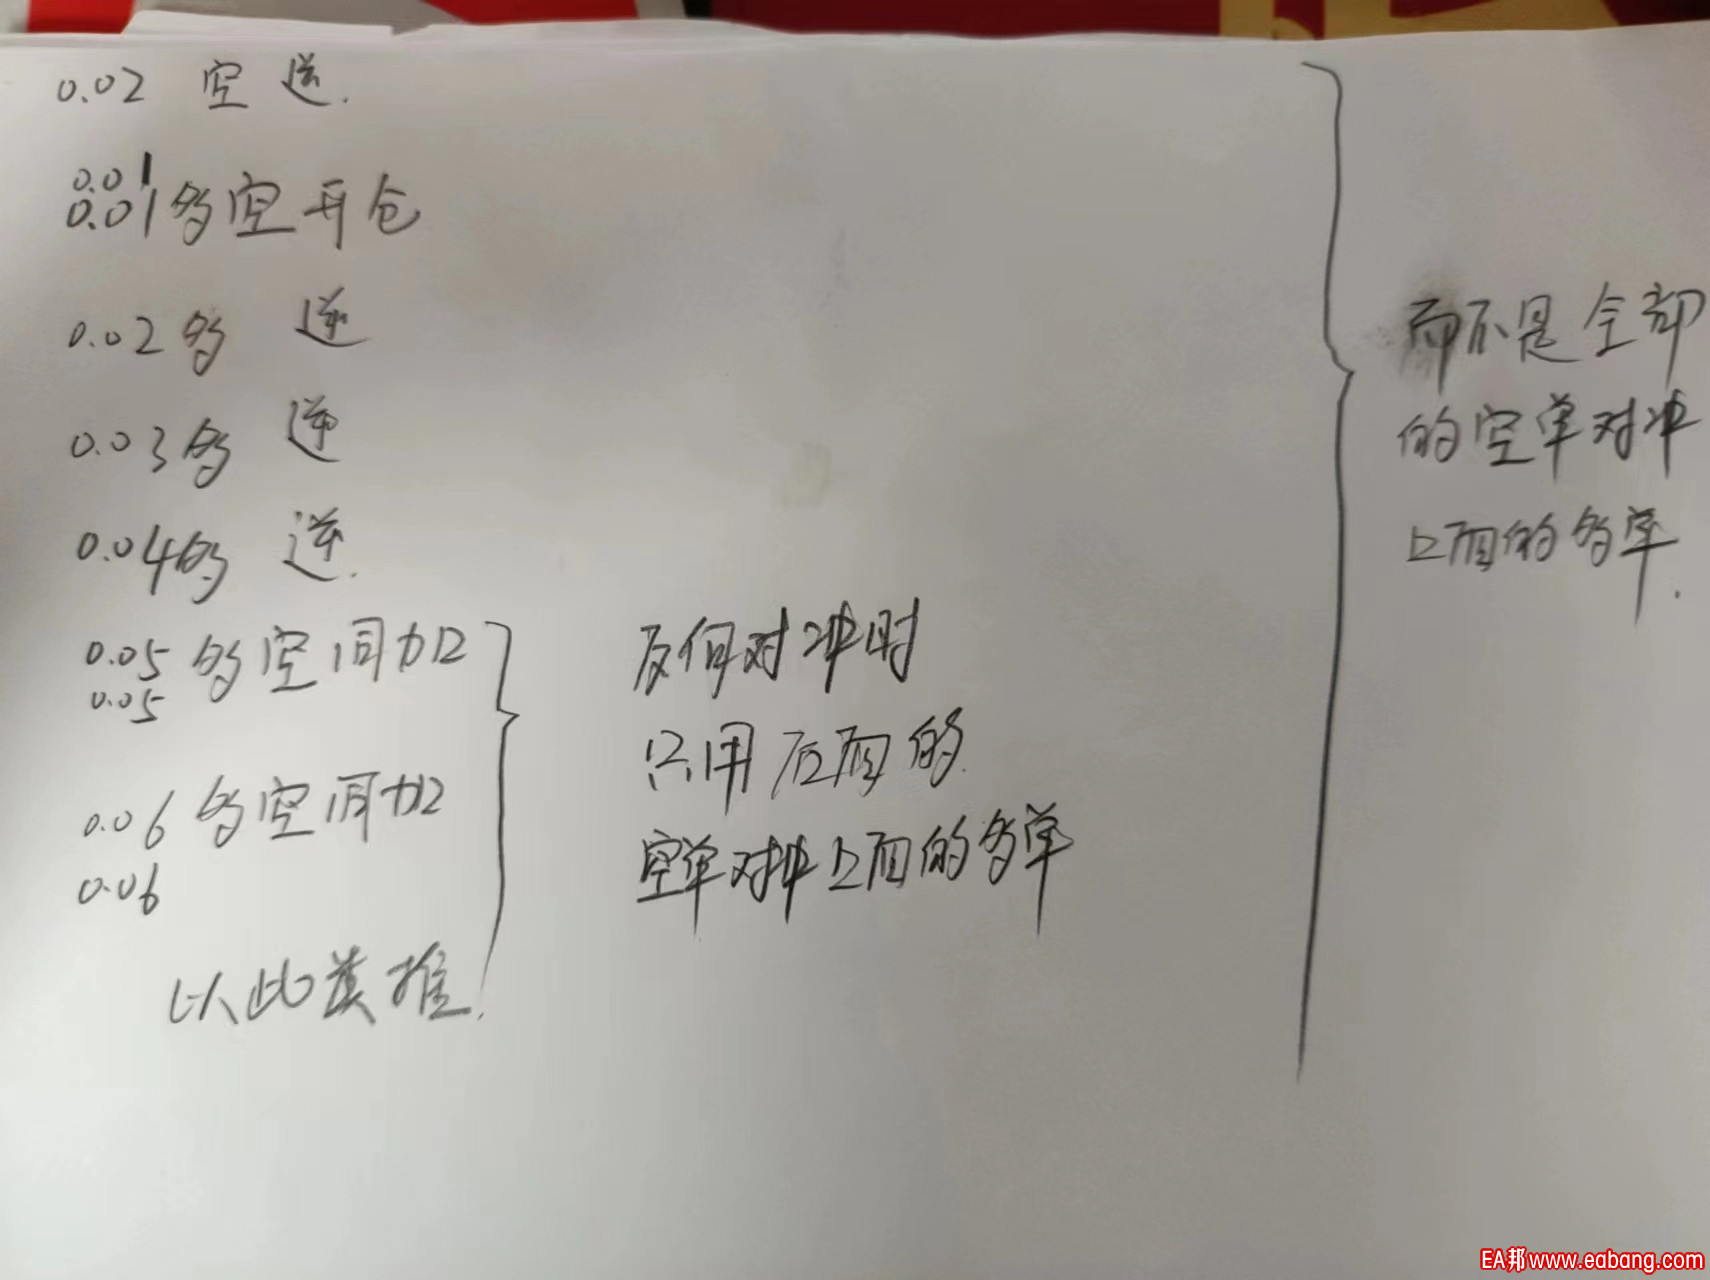 0.02 空 逆.
0.01
0.01 多空开仓
0.02 多 逆
0.03 多 逆
0.04 多 逆.
0.05 多空同加
0.05
0.06 多空同加
0.06
以此类推.
反向对冲时
只用后面的
空单对冲上面的多单
而不是全部
的空单对冲
上面的多单.
EA邦 www.eabang.com